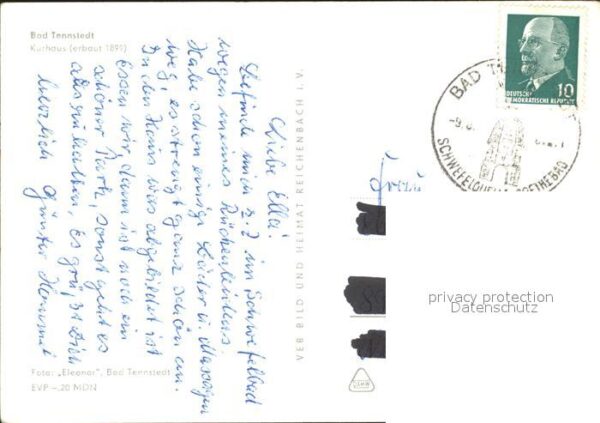 Bad Tennstedt
Kurhaus (erbaut 1899)
Liebe Ella!
Befinde mich z. Z. im Schwefelbad
wegen meines Rückenleidens.
Habe schon einige Bäder u. Massagen
weg, es strengt ganz schön an.
In dem Haus was abgebildet ist
Essen wir, dann ist noch ein
schöner Park, sonst geht es
auszuhalten, Es grüßt Dich
herzlich Günter
Foto: „Eleonor", Bad Tennstedt
EVP –,20 MDN
VEB BILD UND HEIMAT REICHENBACH i. V.
DEUTSCHE
DEMOKRATISCHE REPUBLIK
10
BAD
-9.
Frau
privacy protection
Datenschutz